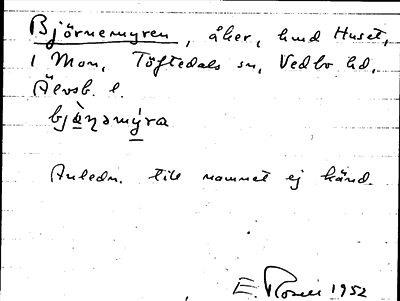 Björnemyren, åker, hmd Huset,
1 Mon, Töftedals sn, Vedbo hd,
Älvsb. l.
bjä̀ηəmýra
Anledn. till namnet ej känd.
E. Rosell 1952